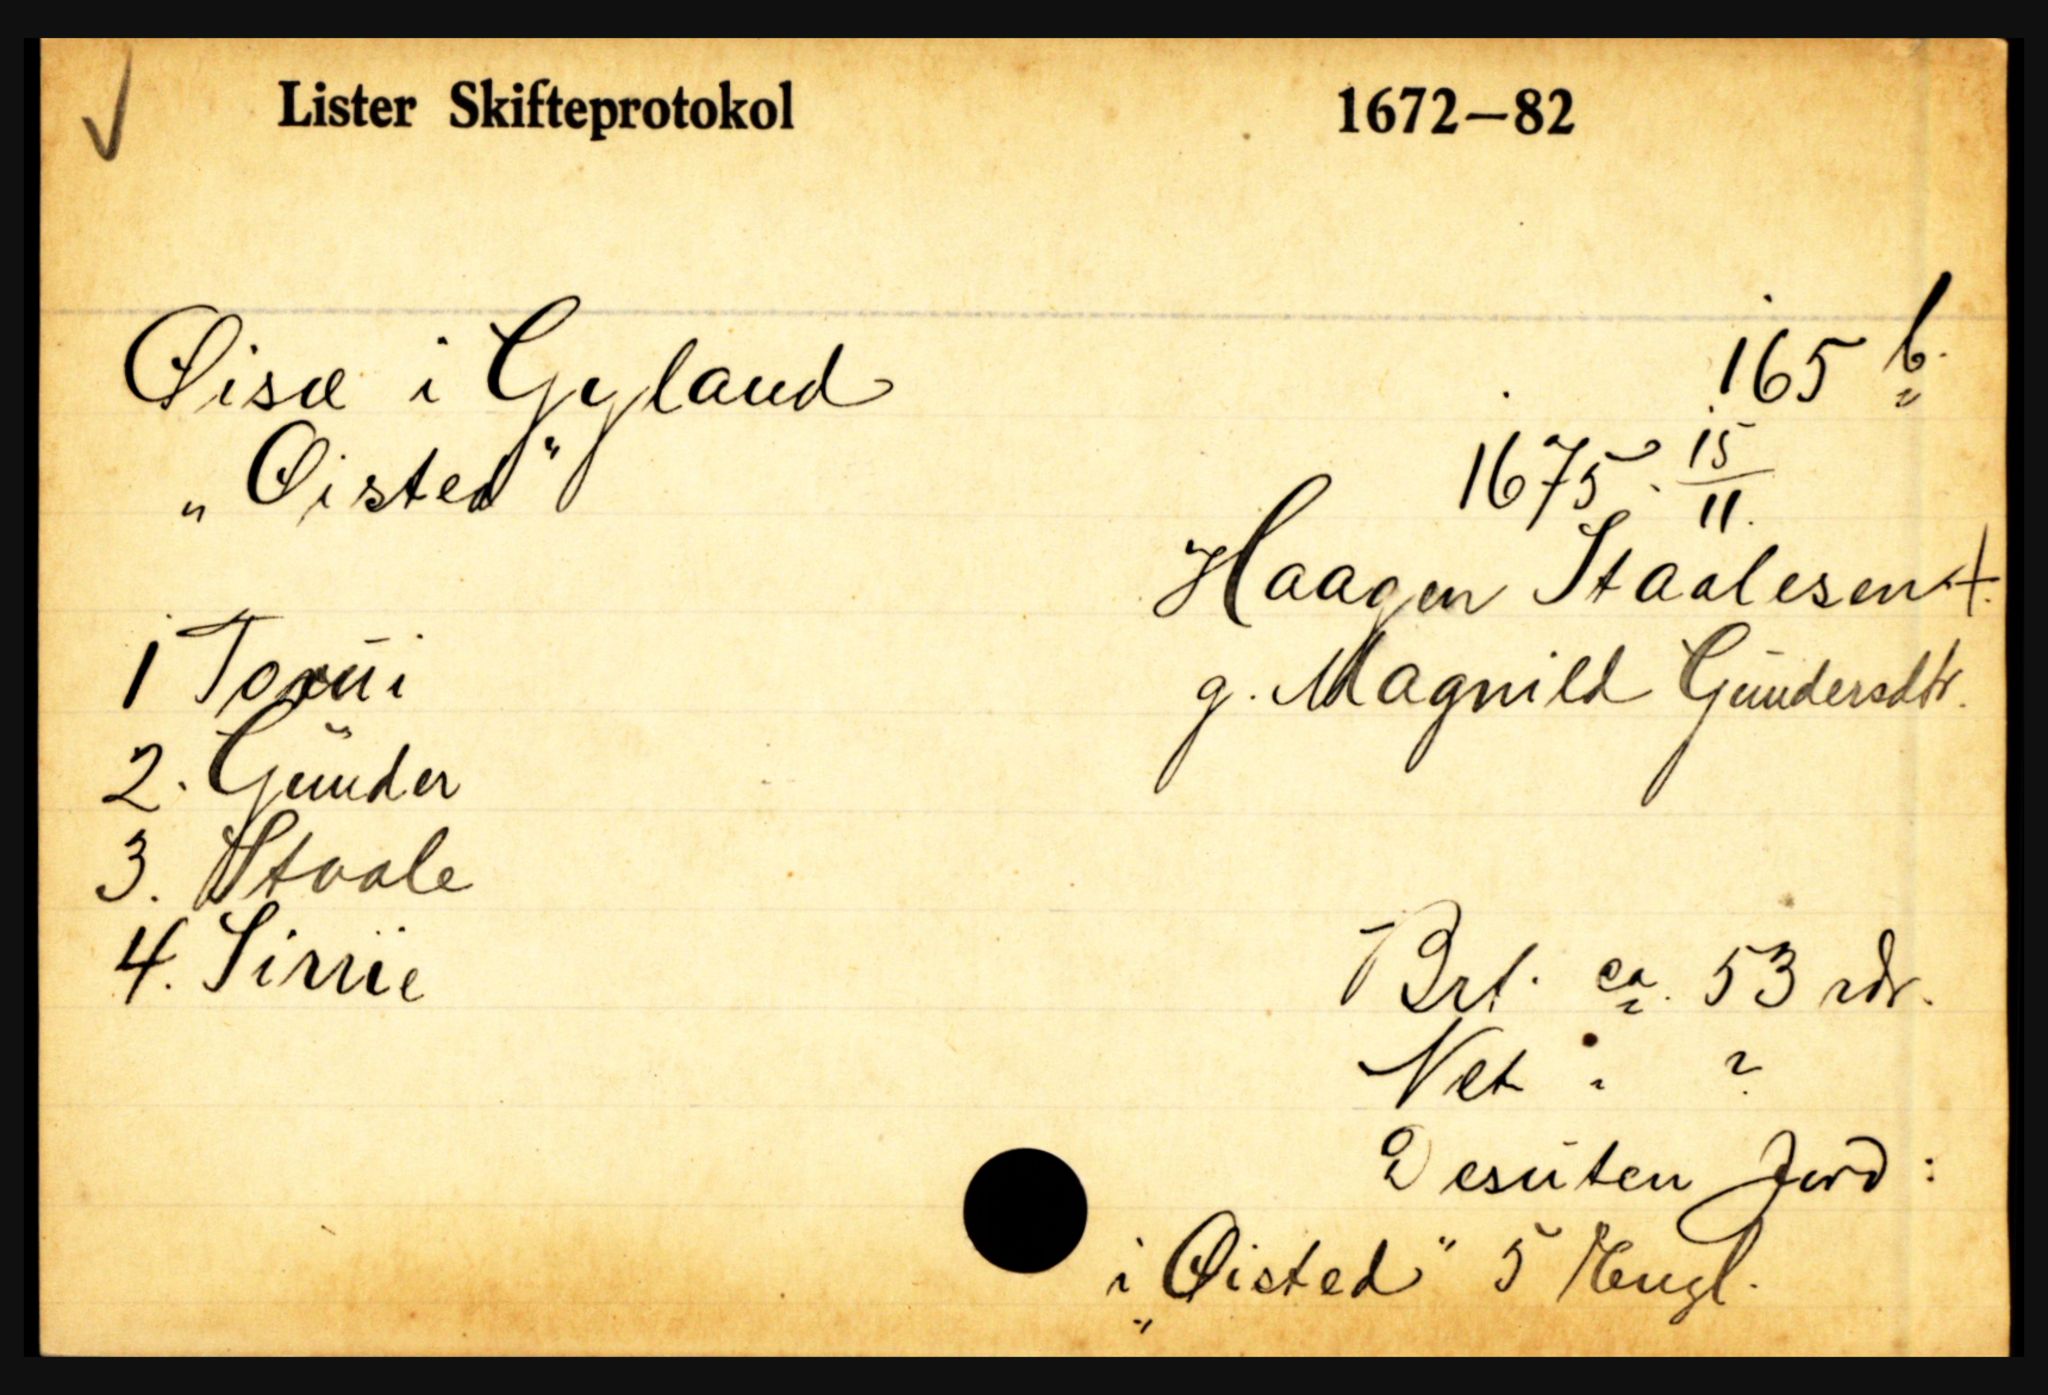 Lister Skifteprotokol 1672–82
Øisæ i Gyland 165 b.
„Øisted" 1675 15/11.
Haagen Staalesen †.
g. Magnild Gŭndersdtr.
1
2. Gŭnder
3. Staale
4. Sirrie
Brt. ca. 53 rdr.
Net " ?
Desŭten Jord:
i „Øisted" 5 Engl.